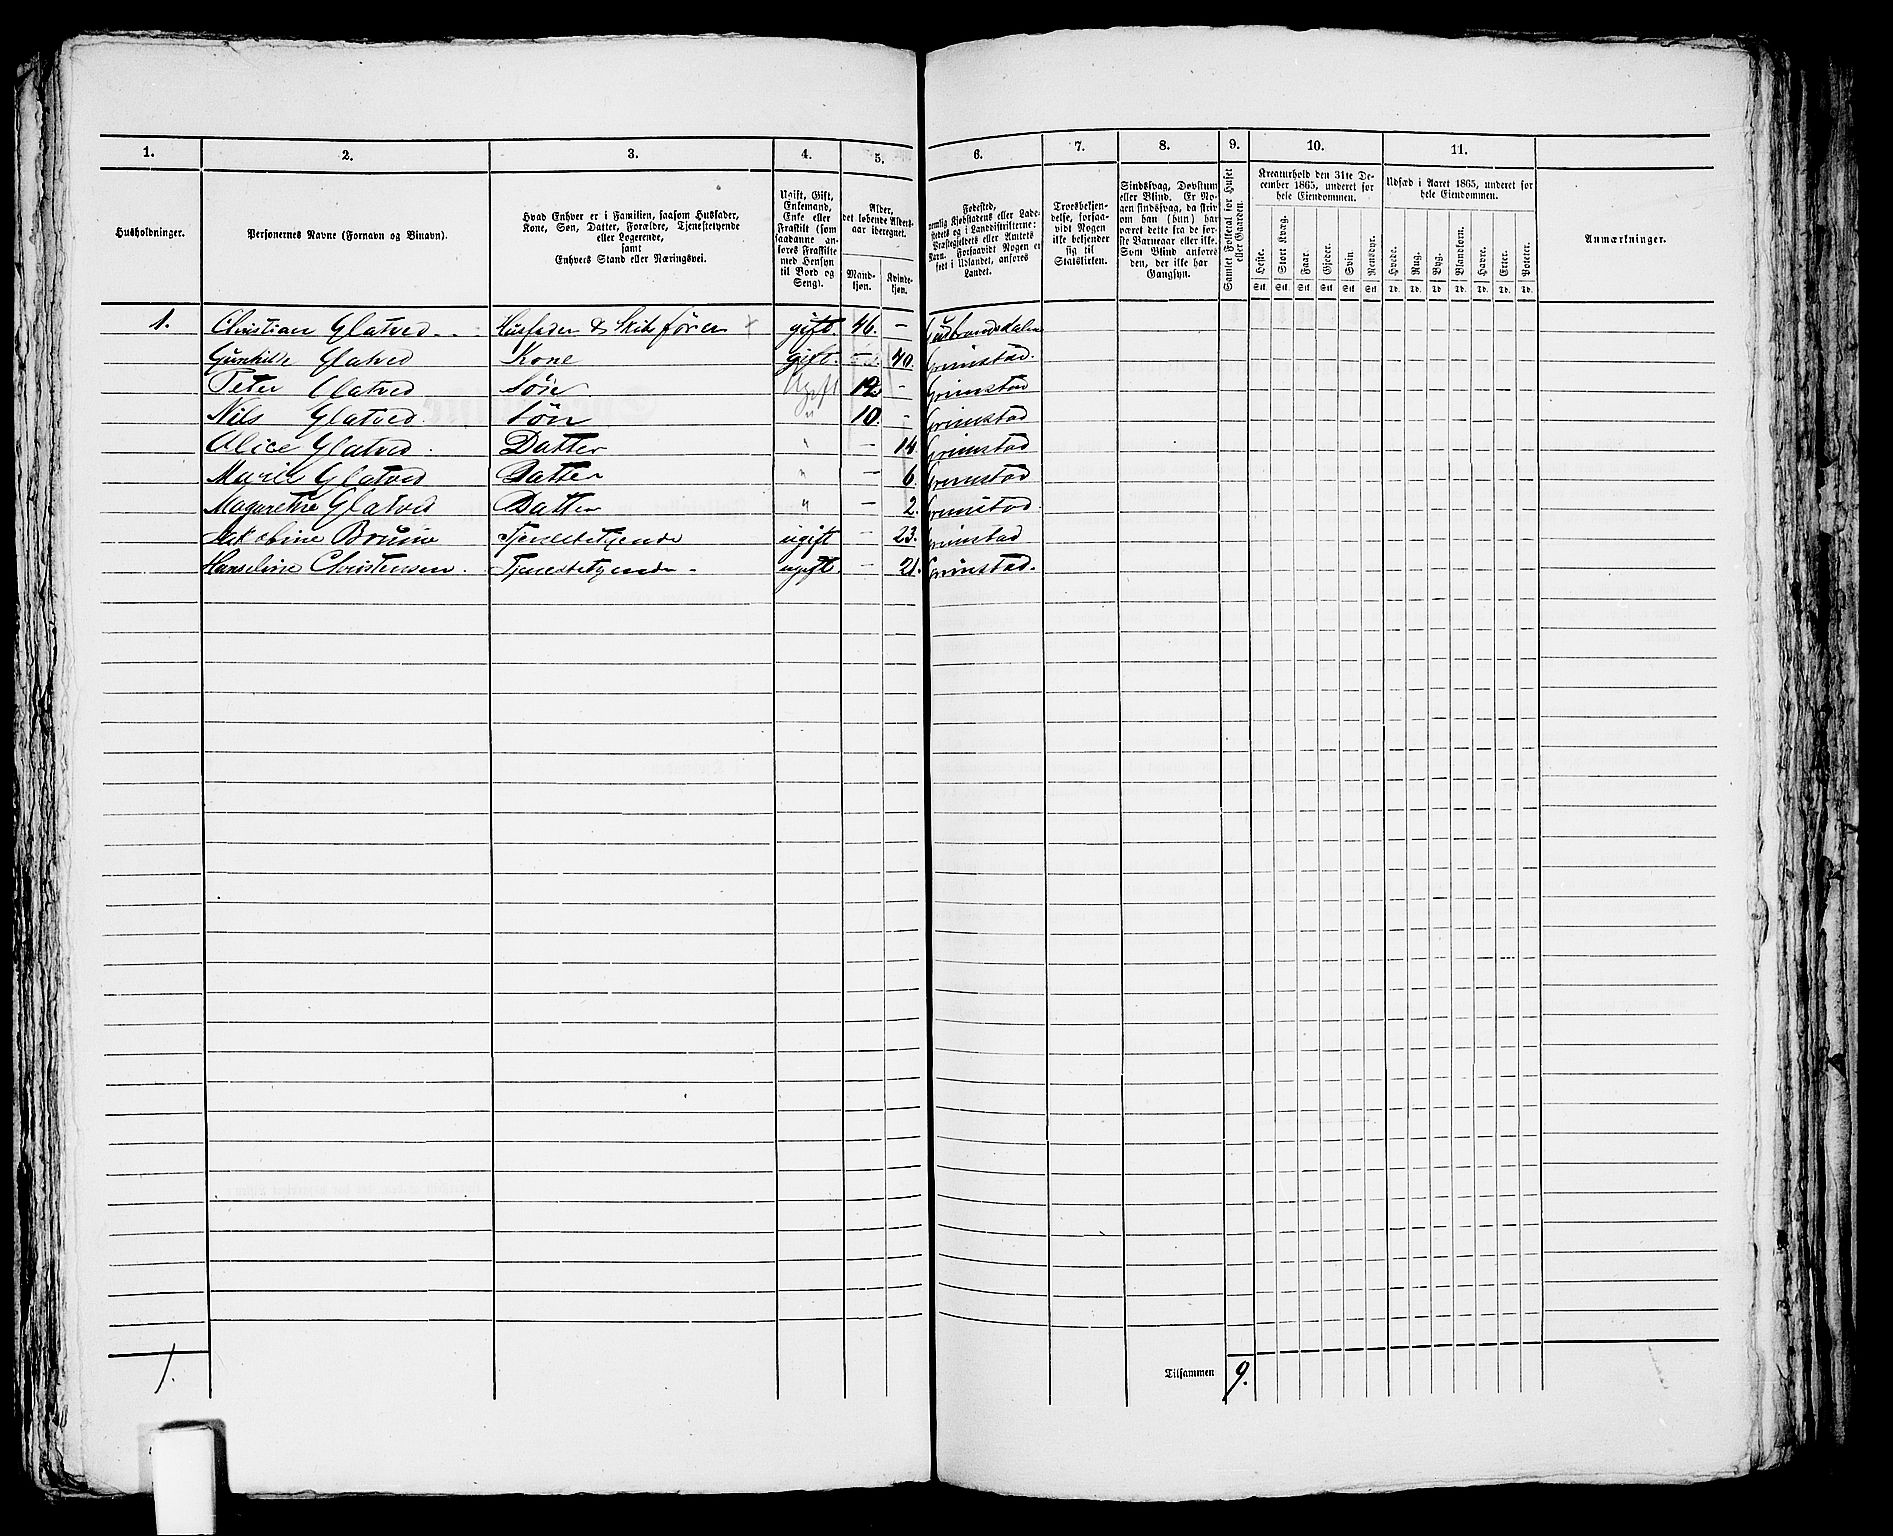 1. 2. 3. 4. 5. 6. 7. 8. 9. 10. 11.
Husholdninger.
Personernes Navne (Fornavn og Binavn).
Hvad Enhver er i Familien, saasom Husfader,
Kone, Søn, Datter, Forældre, Tjenestetyende
eller Logerende,
samt
Enhvers Stand eller Næringsvei.
Ugift, Gift,
Enkemand,
Enke eller
Fraskilt (som
saadanne an-
føres Fraskilte
med Hensyn
til Bord og
Seng).
Alder,
det løbende Alders-
aar iberegnet.
Mand-
kjøn.
Kvinde-
kjøn.
Fødested,
nemlig Kjøbstadens eller Lade-
stedets og i Landdistrikterne:
Præstegjeldets eller Amtets
Navn. Forsaavidt Nogen er
født i Udlandet, anføres
Landet.
Troesbekjen-
delse, forsaa-
vidt Nogen
ikke bekjender
sig til
Statskirken.
Sindssvag, Døvstum
eller Blind. Er No-
gen sindssvag, da skriv
om han (hun) har
været dette fra de før-
ste Barneaar eller ikke.
Som Blind anføres
den, der ikke har
Gangsyn.
Samlet Folketal for Huset
eller Gaarden.
Kreaturhold den 31te De-
cember 1865, underet for
hele Eiendommen.
Heste. Stort Kvæg. Faar. Gjeder. Svin. Rensdyr.
Stk. Stk. Stk. Stk. Stk. Stk.
Udsæd i Aaret 1865, underet for
hele Eiendommen.
Hvede. Rug. Byg. Blandkorn. Havre. Erter. Poteter.
Td. Td. Td. Td. Td. Td. Td.
Anmærkninger.
1. Christian Glatved Husfader & Skibsfører gift. 46. – Gudbrandsdalen
Gunhilde Glatved Kone gift. – 40. Grimstad.
Peter Glatved Søn Ugift 12 – Grimstad
Nils Glatved Søn " 10. – Grimstad
Alice Glatved. Datter " – 14 Grimstad
Marie Glatved Datter " – 6. Grimstad
Magarethe Glatved Datter " – 2. Grimstad.
Jakobine Bruun Tjenestetyende ugift – 23. Grimstad
Hanseline Christensen. Tjenestetyende ugift. – 21. Grimstad.
1.
Tilsammen 9.